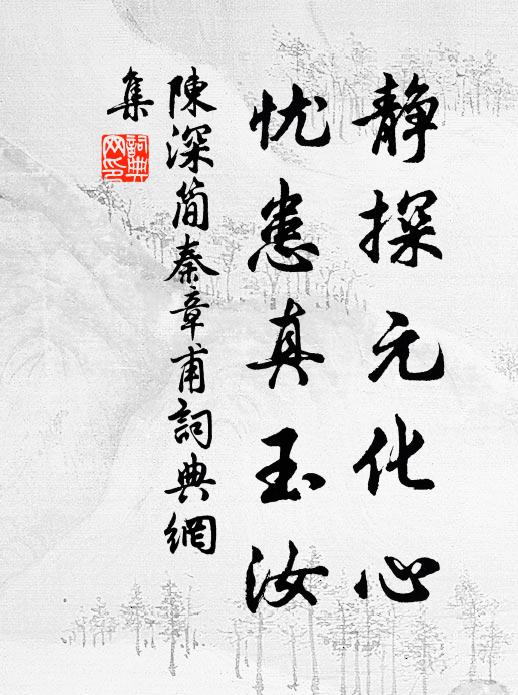 静探元化心
忧患真玉汝
陳深简秦章甫詞典網
集
詞典
网印